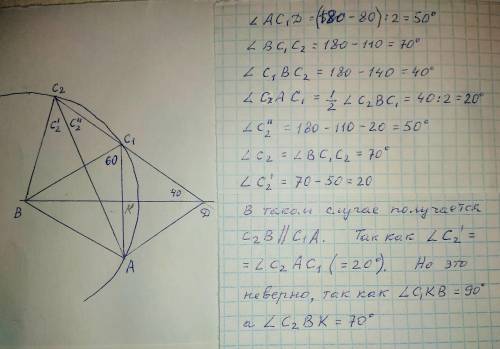 C₂
C₂' C₂"
C₁
60
40
B
K
D
A
∠AC₁D = (180 - 80) : 2 = 50°
∠BC₁C₂ = 180 - 110 = 70°
∠C₁BC₂ = 180 - 140 = 40°
∠C₂AC₁ = ½ ∠C₂BC₁ = 40 : 2 = 20°
∠C₂" = 180 - 110 - 20 = 50°
∠C₂ = ∠BC₁C₂ = 70°
∠C₂' = 70 - 50 = 20
В таком случае получается
C₂B ∥ C₁A. Так как ∠C₂' =
= ∠C₂AC₁ (= 20°). Но это
неверно, так как ∠C₁KB = 90°
а ∠C₂BK = 70°